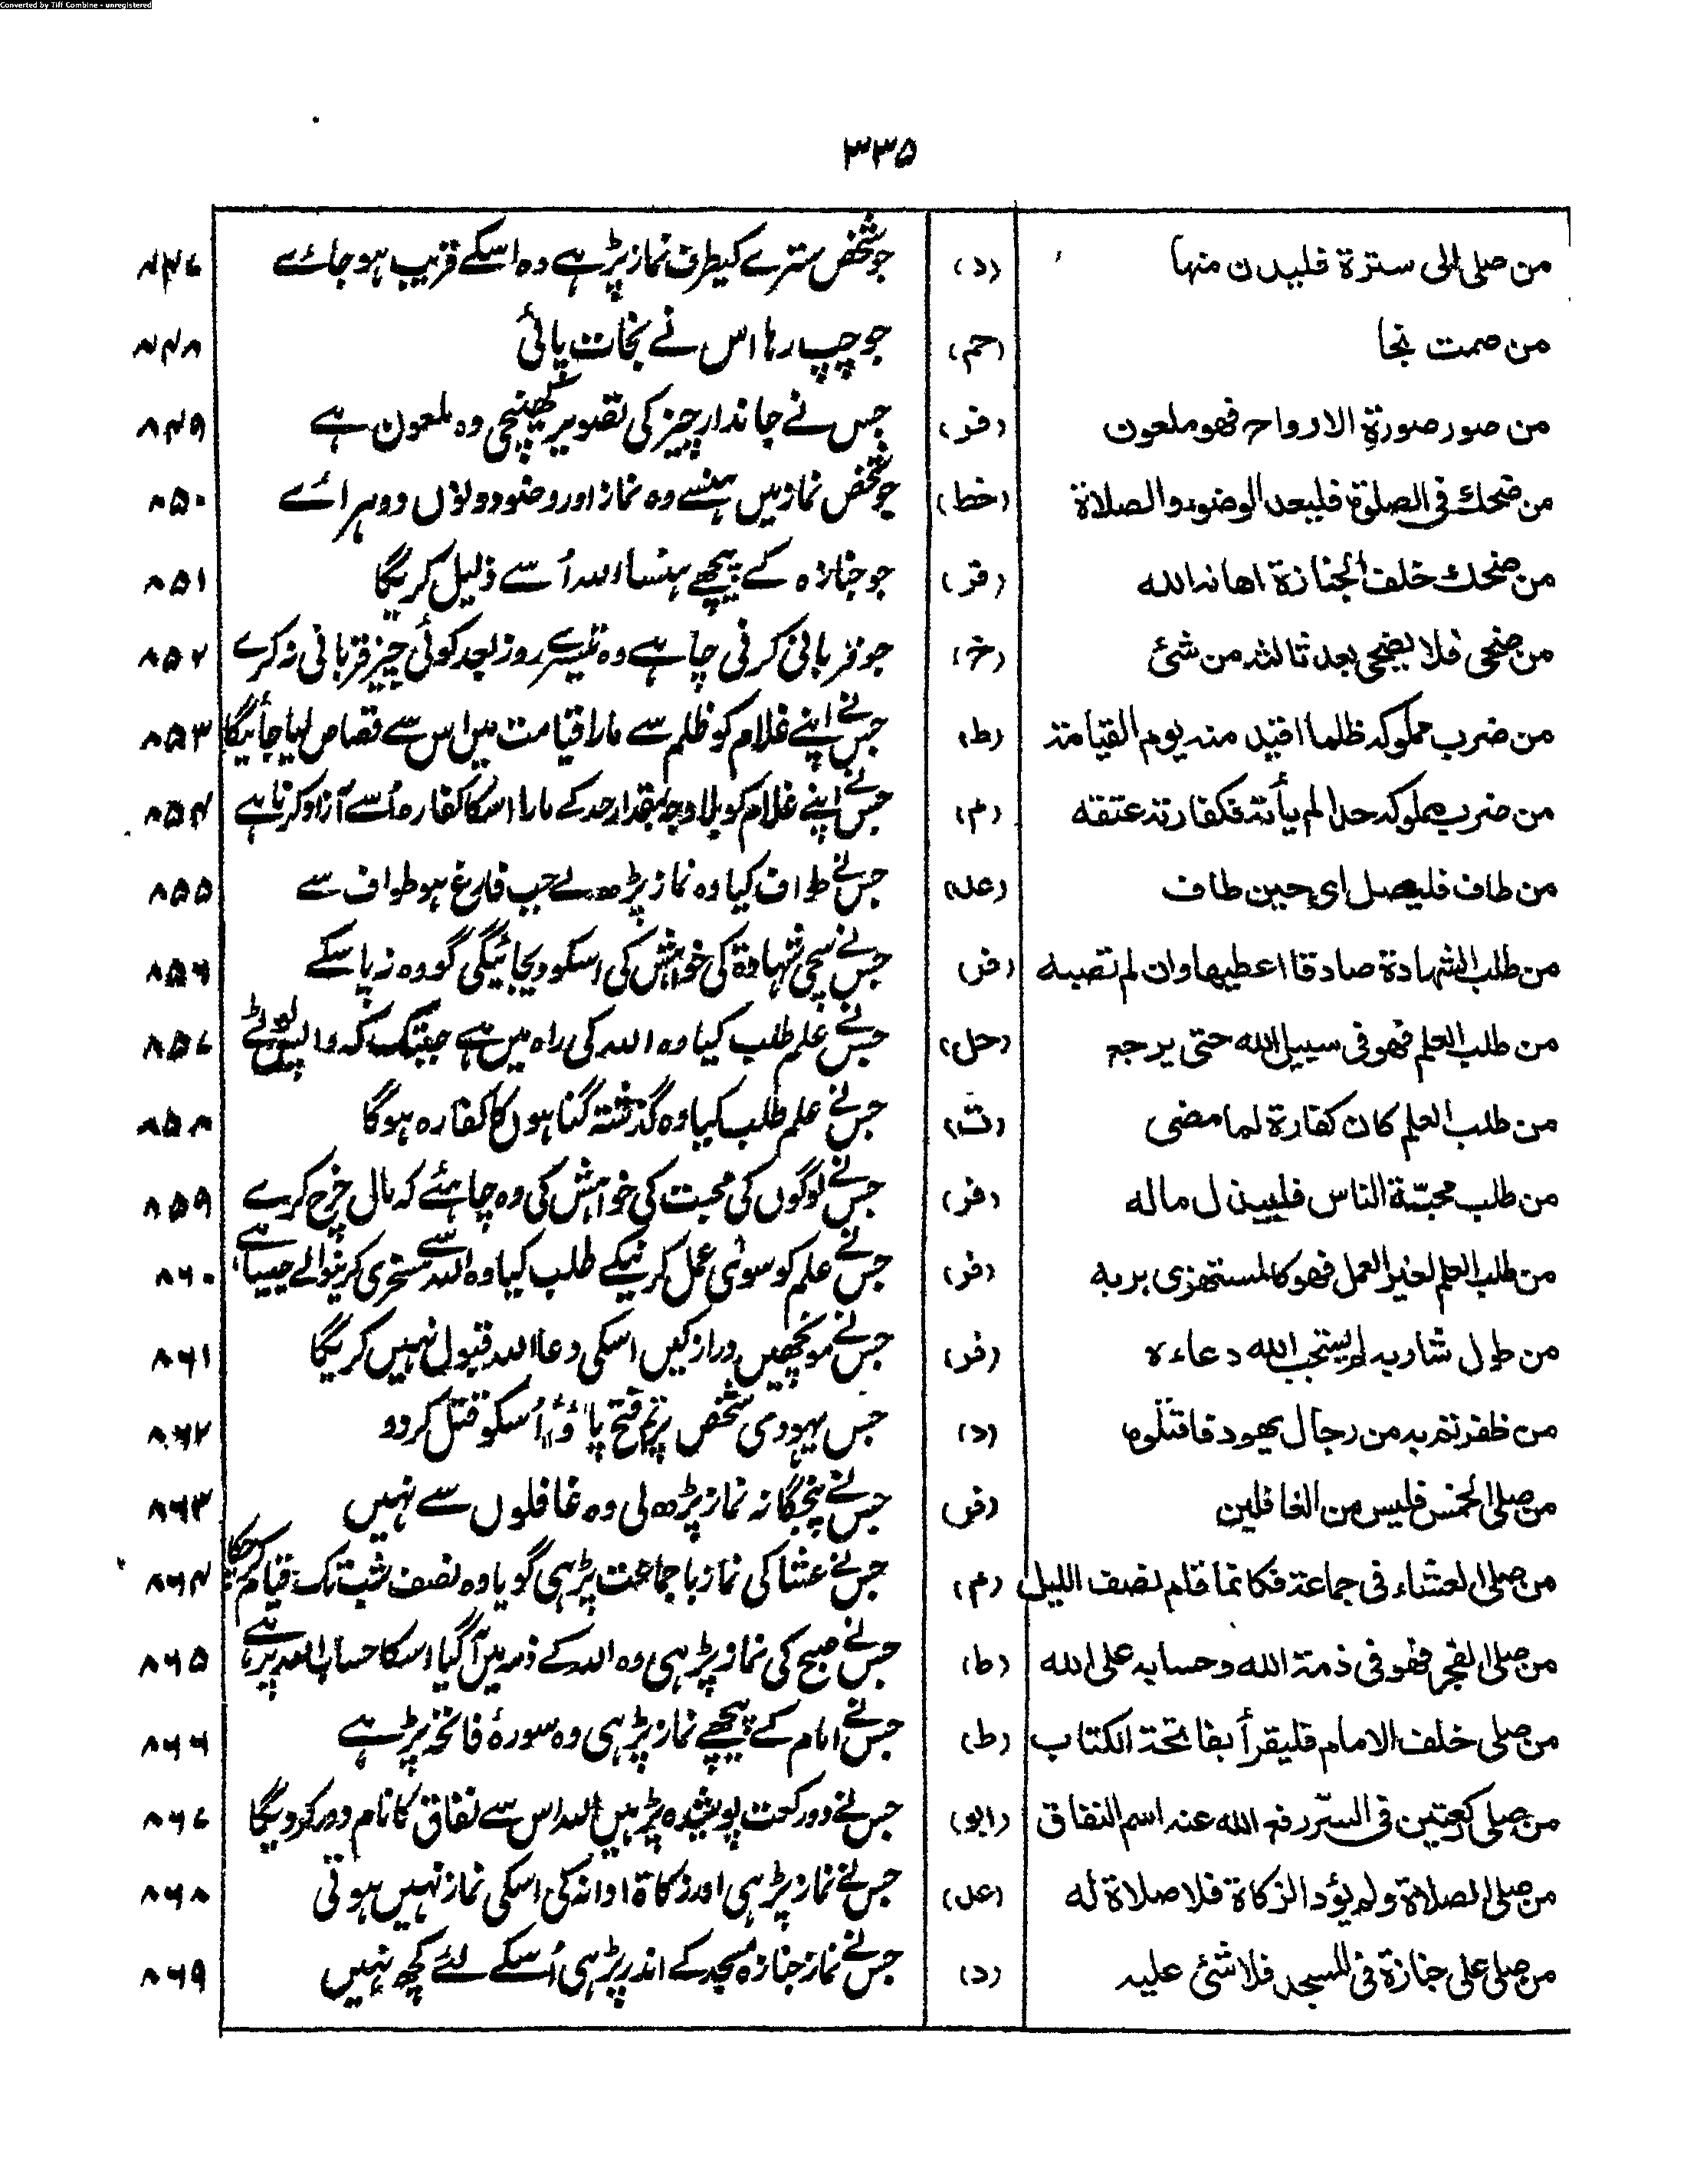 Converted by Tiff Combine - unregistered
۳۳۵
من صلى الى سترة فليدن منها (د) جو شخص سترے کیطرف نماز پڑہے وہ اسکے قریب ہو جائے ۸۴۷
من صمت نجا (حم) جو چپ رہا اس نے نجات پائی ۸۴۸
من صور صورة الارواح فهو ملعون (فر) جس نے جاندار چیز کی تصویر کھینچی وہ ملعون ہے ۸۴۹
من ضحك فى الصلوة فليعد الوضوء والصلاة (خط) جو شخص نماز میں ہنسے وہ نماز اور وضو دونوں دوہرائے ۸۵۰
من ضحك خلف الجنازة اهانه الله (فر) جو جنازہ کے پیچھے ہنسا اللہ اُسے ذلیل کریگا ۸۵۱
من ضحى فلا يضحى بعد ثالثه من شئ (خ) جو قربانی کرنی چاہے وہ تیسرے روز بعد کوئی چیز قربانی نہ کرے ۸۵۲
من ضرب مملوكه ظلما اقيد منه يوم القيامة (ط) جس نے اپنے غلام کو ظلم سے مارا قیامت میں اس سے قصاص لیا جائیگا ۸۵۳
من ضرب مملوكه حدا لم يأته فكفارته عتقه (م) جس نے اپنے غلام کو بلا وجہ بمقدار حد کے مارا اسکا کفارہ اُسے آزاد کرنا ہے ۸۵۴
من طاف فليصل اى حين طاف (عد) جس نے طواف کیا وہ نماز پڑھ لے جب فارغ ہو طواف سے ۸۵۵
من طلب الشهادة صادقا اعطيها وان لم تصبه (فر) جس نے سچی شہادۃ کی خواہش کی اسکو دیجائیگی گو وہ نہ پا سکے ۸۵۶
من طلب العلم فهو فى سبيل الله حتى يرجع (حل) جس نے علم طلب کیا وہ اللہ کی راہ میں ہے جبتک کہ واپس لوٹے ۸۵۷
من طلب العلم كان كفارة لما مضى (ت) جس نے علم طلب کیا وہ گذشتہ گناہوں کا کفارہ ہوگا ۸۵۸
من طلب محبّة الناس فليبذل ماله (فر) جس نے لوگوں کی محبت کی خواہش کی وہ چاہئے کہ مال خرچ کرے ۸۵۹
من طلب العلم لغير العمل فهو كالمستهزى بربه (فر) جس نے علم کو سوئی عمل کرنیکے طلب کیا وہ اللہ سے مسخری کرنیوالے جیسا ہے ۸۶۰
من طول شاربه لم يستجب الله دعاءه (فر) جس نے مونچھیں دراز کیں اسکی دعا اللہ قبول نہیں کریگا ۸۶۱
من ظفرتم به من رجال يهود فاقتلوه (د) جس یہودی شخص پر تم فتح پاؤ اُسکو قتل کر دو ۸۶۲
من صلى الخمس فليس من الغافلين (فر) جس نے پنجگانہ نماز پڑھ لی وہ غافلوں سے نہیں ۸۶۳
من صلى العشاء فى جماعة فكانما قام نصف الليل (م) جس نے عشا کی نماز با جماعت پڑہی گویا وہ نصف شب تک قیام کر چکا ۸۶۴
من صلى الفجر فهو فى ذمة الله وحسابه على الله (ط) جس نے صبح کی نماز پڑہی وہ اللہ کے ذمہ میں آگیا اسکا حساب اللہ پر ہے ۸۶۵
من صلى خلف الامام فليقرأ بفاتحة الكتاب (ط) جس نے امام کے پیچھے نماز پڑہی وہ سورۂ فاتحہ پڑہے ۸۶۶
من صلى ركعتين فى السّر رفع الله عنه اسم النفاق (ابو) جس نے دو رکعت پوشیدہ پڑہیں اللہ اس سے نفاق کا نام دور کر دیگا ۸۶۷
من صلى الصلاة ولم يؤد الزكاة فلا صلاة له (عد) جس نے نماز پڑہی اور زکاۃ ادا نہ کی اسکی نماز نہیں ہوتی ۸۶۸
من صلى على جنازة فى المسجد فلا شئ عليه (د) جس نے نماز جنازہ مسجد کے اندر پڑہی اُسکے لئے کچھ نہیں ۸۶۹